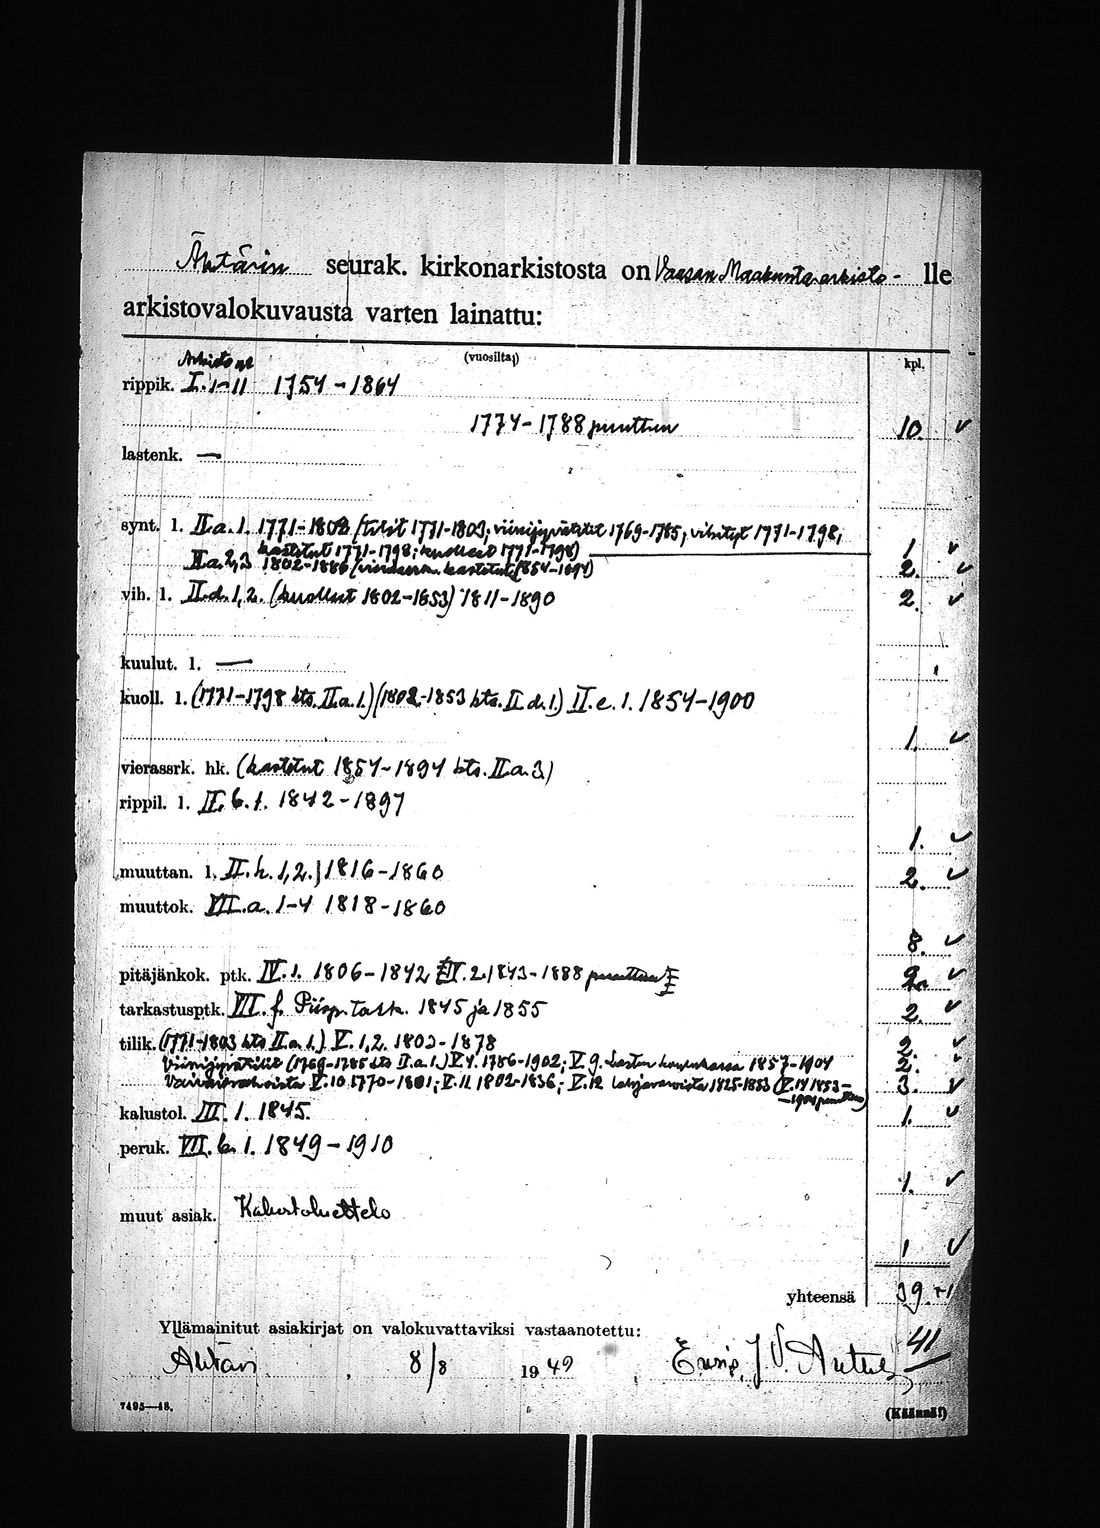 Ähtärin seurak. kirkonarkistosta on Vaasan Maakunta-arkisto- lle
arkistovalokuvausta varten lainattu:
(vuosilta) kpl.
rippik. I. 1-11 1754-1864
1774-1788 puuttuu 10. ✓
lastenk. —
synt. l. II.a.1. 1771-1802 (tilit 1771-1803; viinijyvätilit 1769-1785; vihityt 1771-1798;
kastetut 1771-1798; kuolleet 1771-1798) 1 ✓
II.a.2,3 1802-1886 (vierassrk. kastetut 1854-1894) 2. ✓
vih. l. II.d.1,2. (kuolleet 1802-1853) 1811-1890 2. ✓
kuulut. l. —
kuoll. l. (1771-1798 kts. II.a.1.) (1802-1853 kts. II.d.1.) II.e.1. 1854-1900
1. ✓
vierassrk. hk. (kastetut 1854-1894 kts. II.a.3)
rippil. l. II.b.1. 1842-1897
1. ✓
muuttan. l. II.h.1,2. 1816-1860 2. ✓
muuttok. VII.a.1-4 1818-1860
8. ✓
pitäjänkok. ptk. IV.1. 1806-1842 IV.2. 1843-1888 puuttuu ✓
tarkastusptk. VII.f. Piisp. Tark. 1845 ja 1855 2. ✓
tilik. (1771-1803 kts II.a.1.) V.1,2. 1803-1878 2. ✓
Viinijyvätilit (1769-1785 kts II.a.1.) V.4. 1786-1902; V.9. Lasten 1857-1904 2. ✓
V.10. 1770-1801; V.11 1802-1836; V.12 1825-1853 (V.14 1853- 3. ✓
-1901 puuttuu)
kalustol. III.1. 1845. 1. ✓
peruk. VII.b.1. 1849-1910
1. ✓
muut asiak. Kalustoluettelo
1 ✓
yhteensä 39.+1
Yllämainitut asiakirjat on valokuvattaviksi vastaanotettu: 41
Ähtäri 8/8 19 49 J. V.
7495—48. (Käännä!)